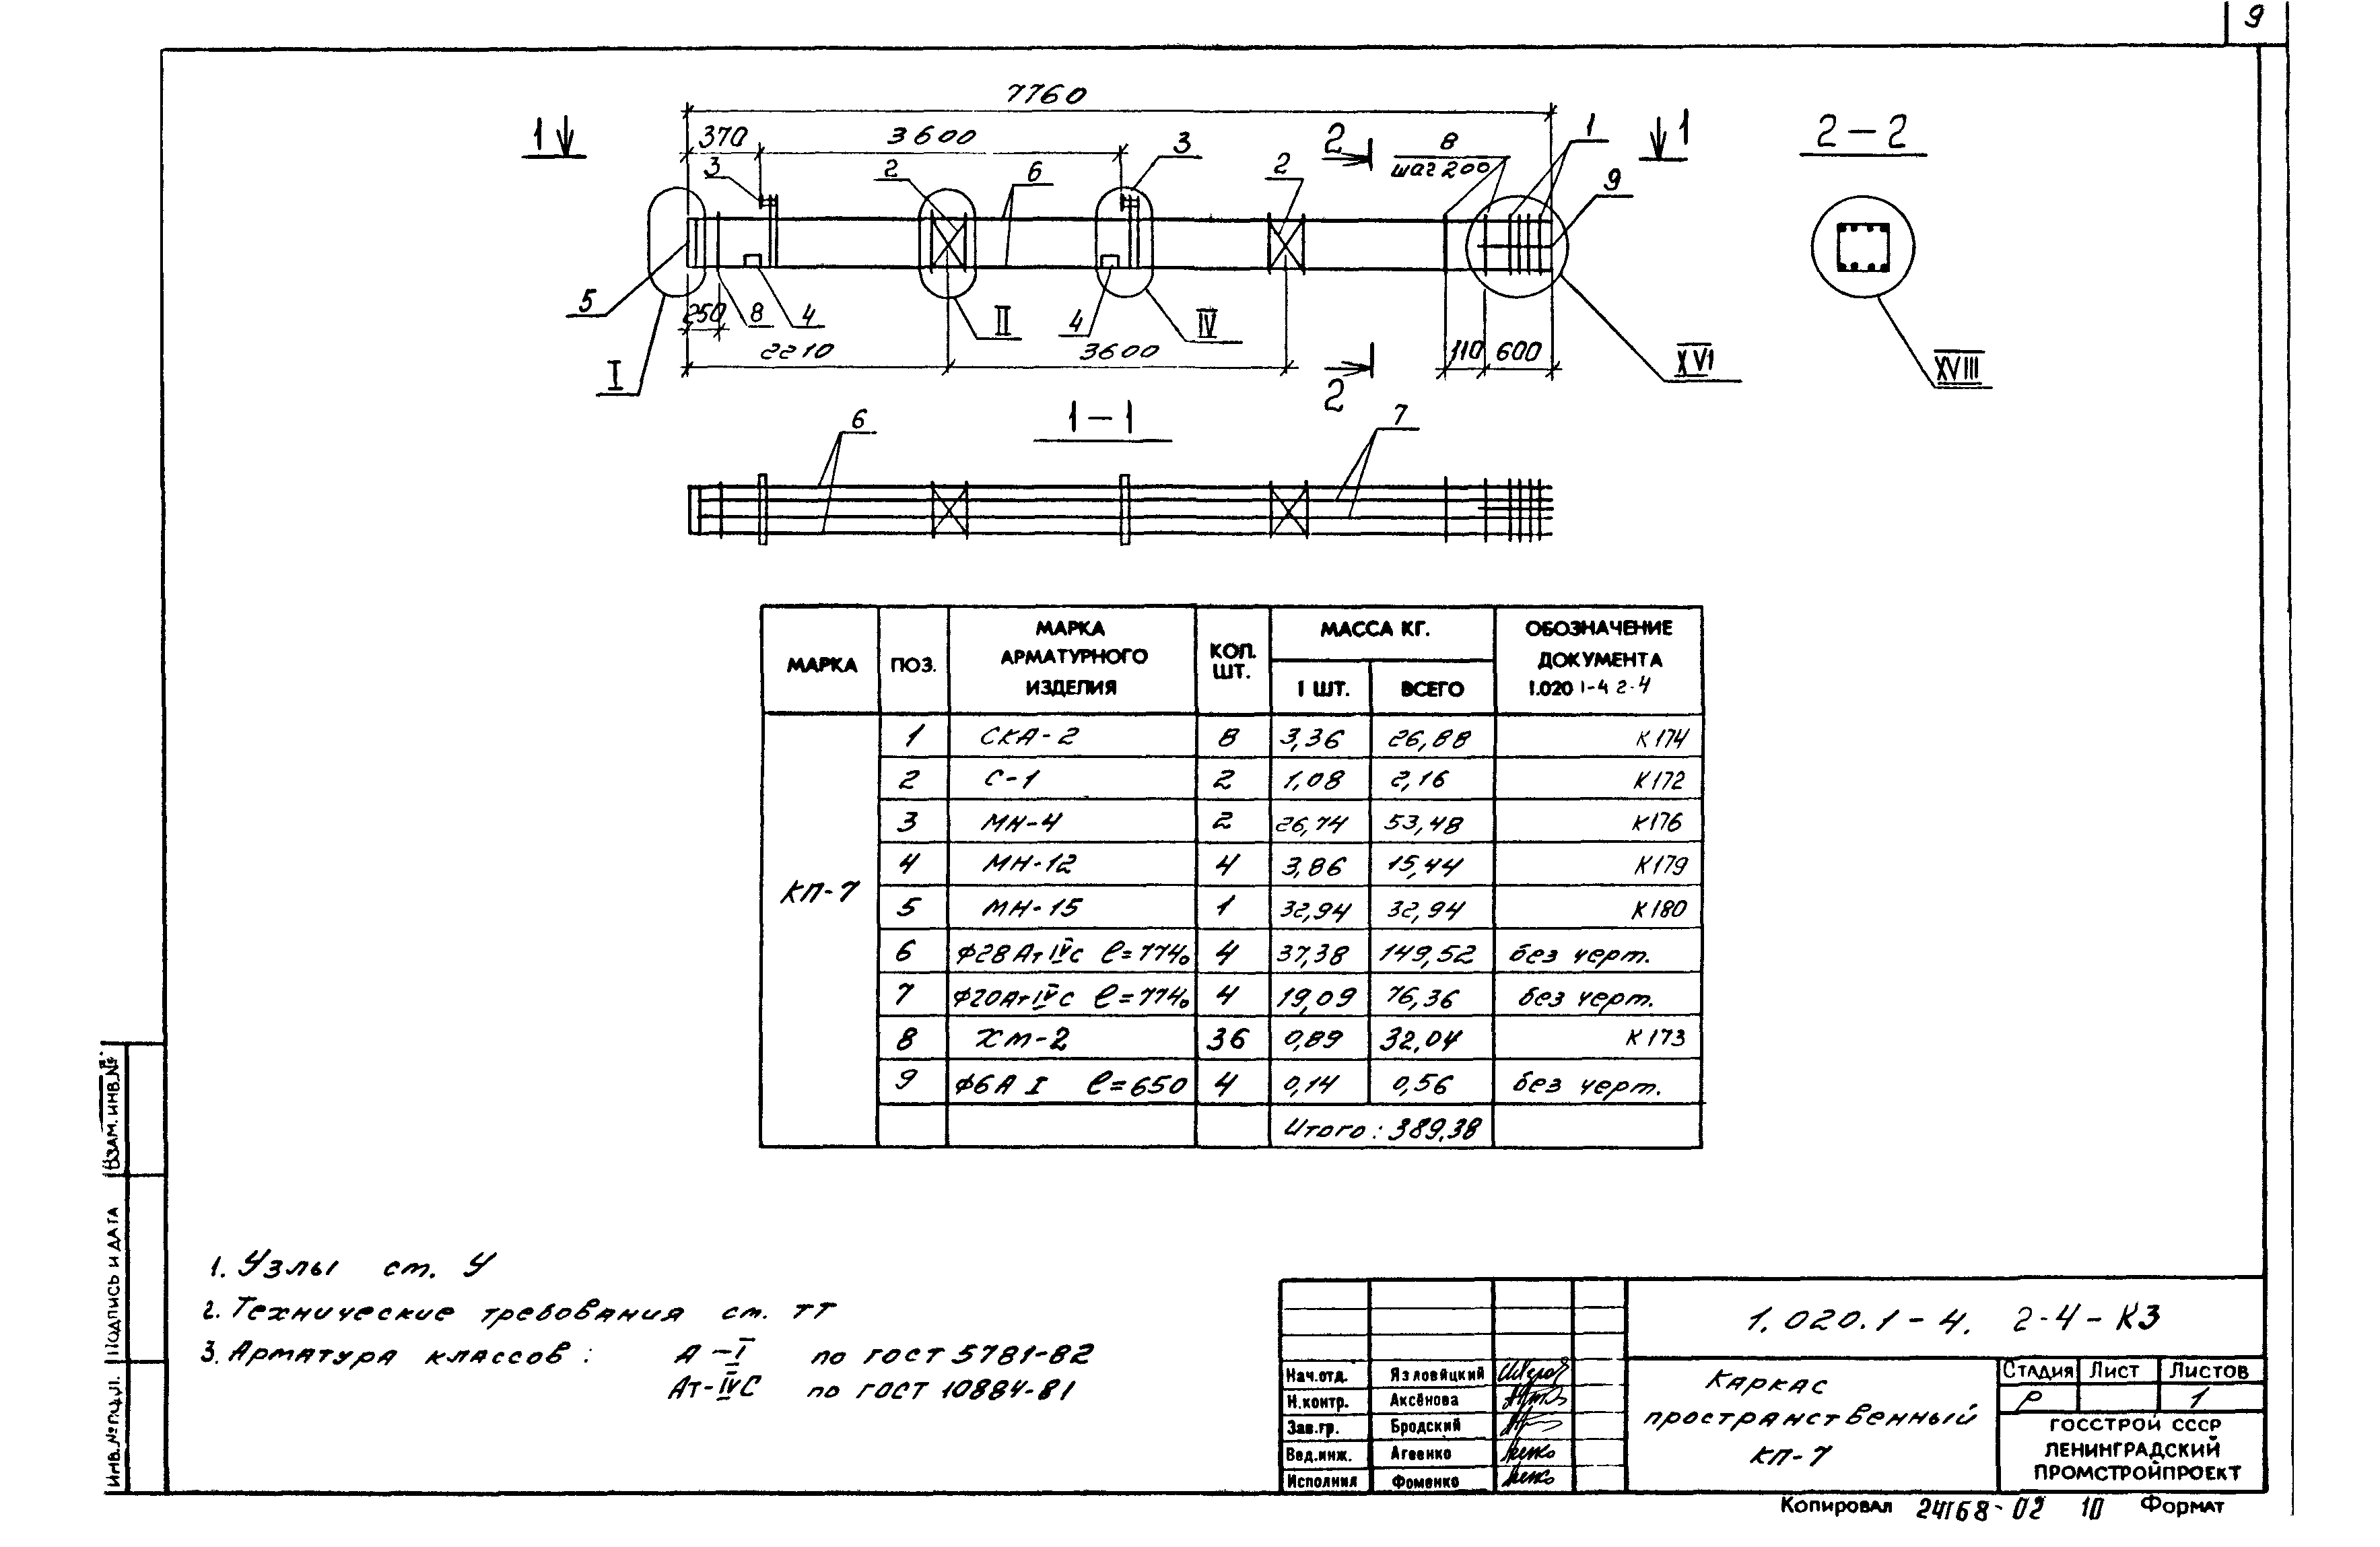 9
7760
370 3600
1 2 8 1 1 2-2
шаг 200
3 2 6 3 2 9
5 250 8 4 II 4 IV
2210 3600 110 600
I 2 XVI XVIII
6 1-1 7
МАРКА ПОЗ. МАРКА АРМАТУРНОГО ИЗДЕЛИЯ КОЛ. ШТ. МАССА КГ. ОБОЗНАЧЕНИЕ ДОКУМЕНТА 1.020 1-4 2-4
1 ШТ. ВСЕГО
КП-7
1 СКА-2 8 3,36 26,88 К174
2 С-1 2 1,08 2,16 К172
3 МН-4 2 26,74 53,48 К176
4 МН-12 4 3,86 15,44 К179
5 МН-15 1 32,94 32,94 К180
6 ф28 Ат IV С ℓ=7740 4 37,38 149,52 без черт.
7 ф20 Ат IV С ℓ=7740 4 19,09 76,36 без черт.
8 ХМ-2 36 0,89 32,04 К173
9 ф6А I ℓ=650 4 0,14 0,56 без черт.
Итого: 389,38
1. Узлы см. У
2. Технические требования см. ТТ
3. Арматура классов: А-I по ГОСТ 5781-82
Ат-IVС по ГОСТ 10884-81
ВЗАМ.ИНВ.№
ПОДПИСЬ И ДАТА
ИНВ.№ ПОДЛ.
1.020.1-4. 2-4-К3
Нач.отд. Язловицкий
Н.контр. Аксёнова
Зав.гр. Бродский
Вед.инж. Агеенко
Исполнил Фоменко
Каркас
пространственный
КП-7
СТАДИЯ ЛИСТ ЛИСТОВ
Р 1
ГОССТРОЙ СССР
ЛЕНИНГРАДСКИЙ
ПРОМСТРОЙПРОЕКТ
Копировал 24168-02 10 Формат